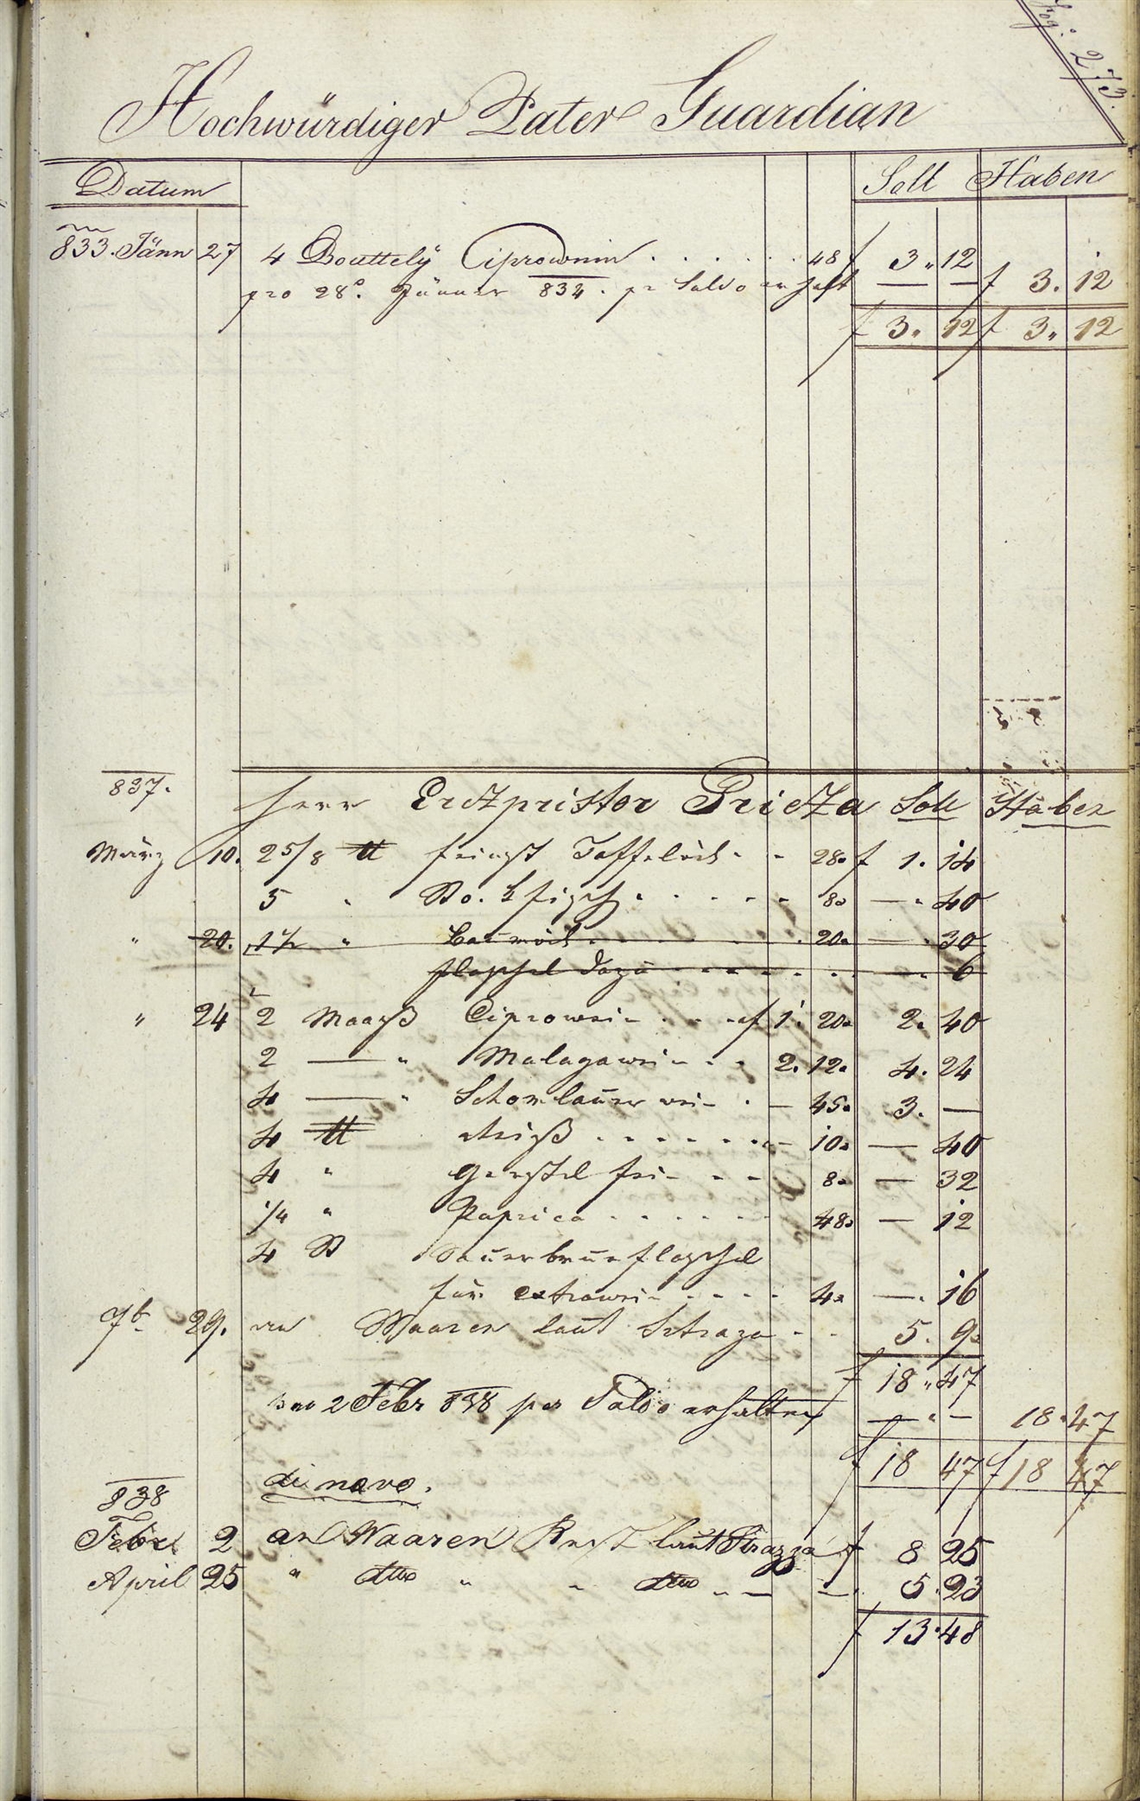 Pag: 273.
Hochwürdiger Pater Guardian
Datum Soll Haben
833. Jänn 27 4 Bouttely Ciprowein . . . . . . 48 f 3 " 12
pro 28º Jänner 834. pr Saldo erhalt — — f 3. 12
f 3 " 12 f 3 " 12
837. Herr Erzpristor Pricza Soll Haben
März 10. 25/8 ℔ feinst Taffelöhl - - 28 f 1. 14
5 " 8 — " 40
" 20. 1½ " Baumöhl . . . . 20 — . 30
flaschel dazu . . . . — . 6
" 24 2 Maaß Ciprowein - - f 1. 20 2. 40
2 — " Malagawein - - 2. 12 4. 24
4 — " Schomlauer wein - — 45 3. —
4 ℔ Reiß . . . . . . — 10 — 40
4 " Gerstel fein - - 8 — 32
¼ " Paprica . . . . . . 48 — 12
4 St Sauerbrunflaschel
für extrawein - - - - 4 — . 16
7b 29. an Waaren laut Sztraza - - 5. 9
f 18 " 47
pro 2 Febr 838 per Saldo erhalten — " — 18 " 47
f 18 47 f 18 47
838 di novo.
Febr 2 an Waaren Rest laut Strazza f 8 25
April 25 " dtto " " dtto " — — 5 . 23
f 13 . 48